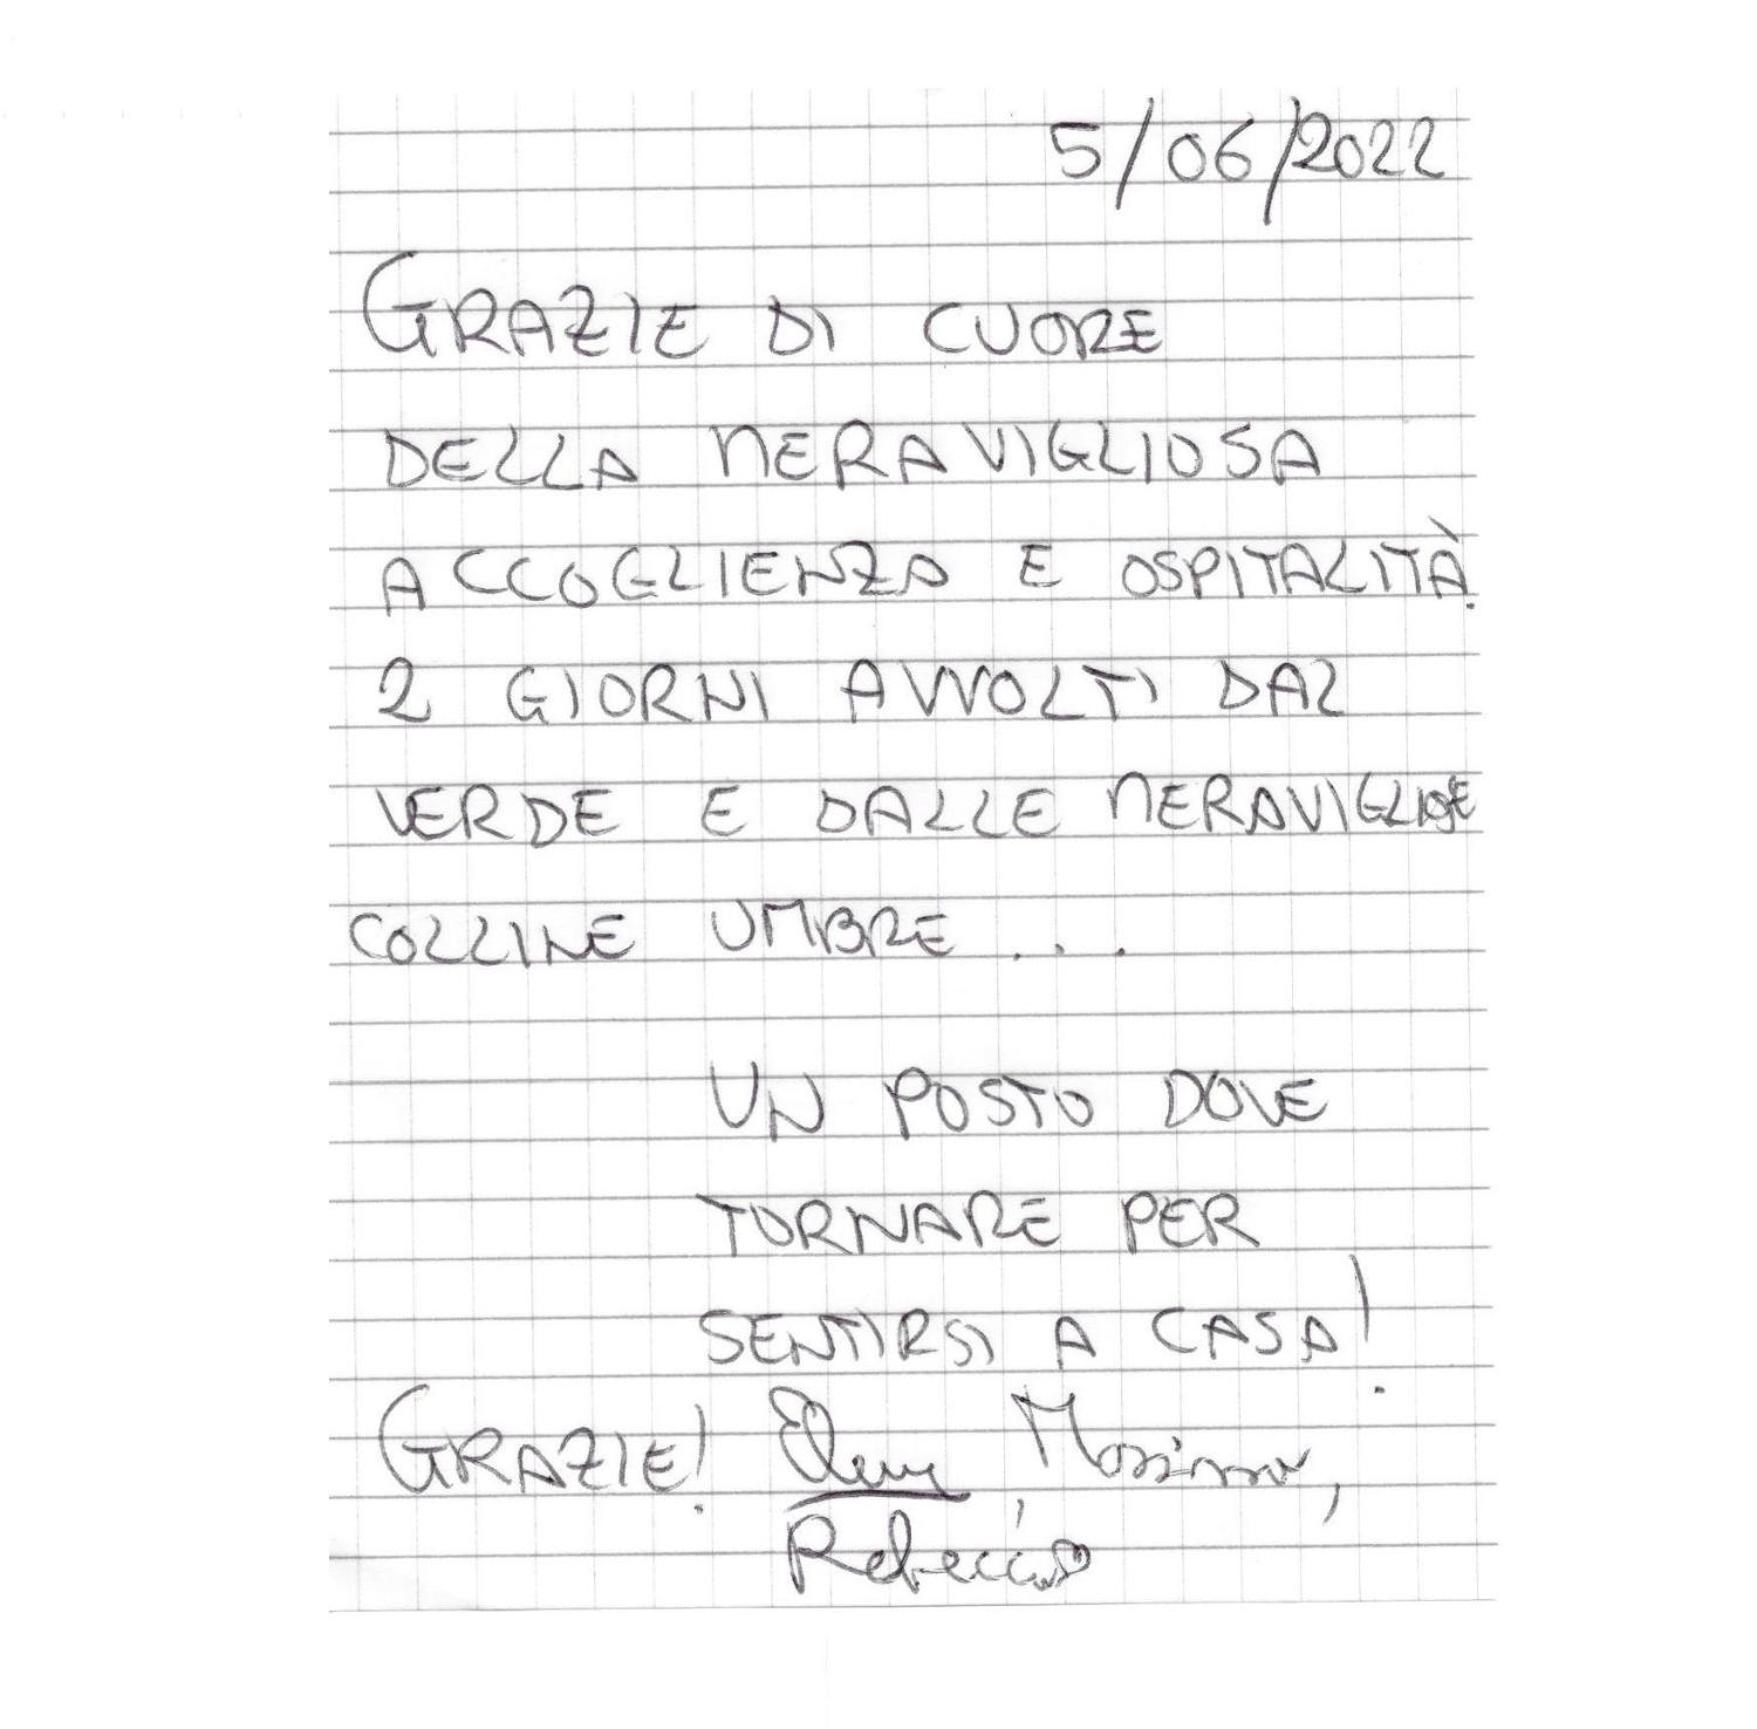 5/06/2022
GRAZIE DI CUORE
DELLA MERAVIGLIOSA
ACCOGLIENZA E OSPITALITÀ.
2 GIORNI AVVOLTI DAL
VERDE E DALLE MERAVIGLIOSE
COLLINE UMBRE ...
UN POSTO DOVE
TORNARE PER
SENTIRSI A CASA!
GRAZIE! Massimo,
Rebecca